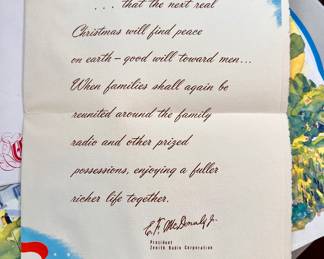 ... that the next real
Christmas will find peace
on earth – good will toward men...
When families shall again be
reunited around the family
radio and other prized
possessions, enjoying a fuller
richer life together.
E. F. McDonald Jr.
President
Zenith Radio Corporation